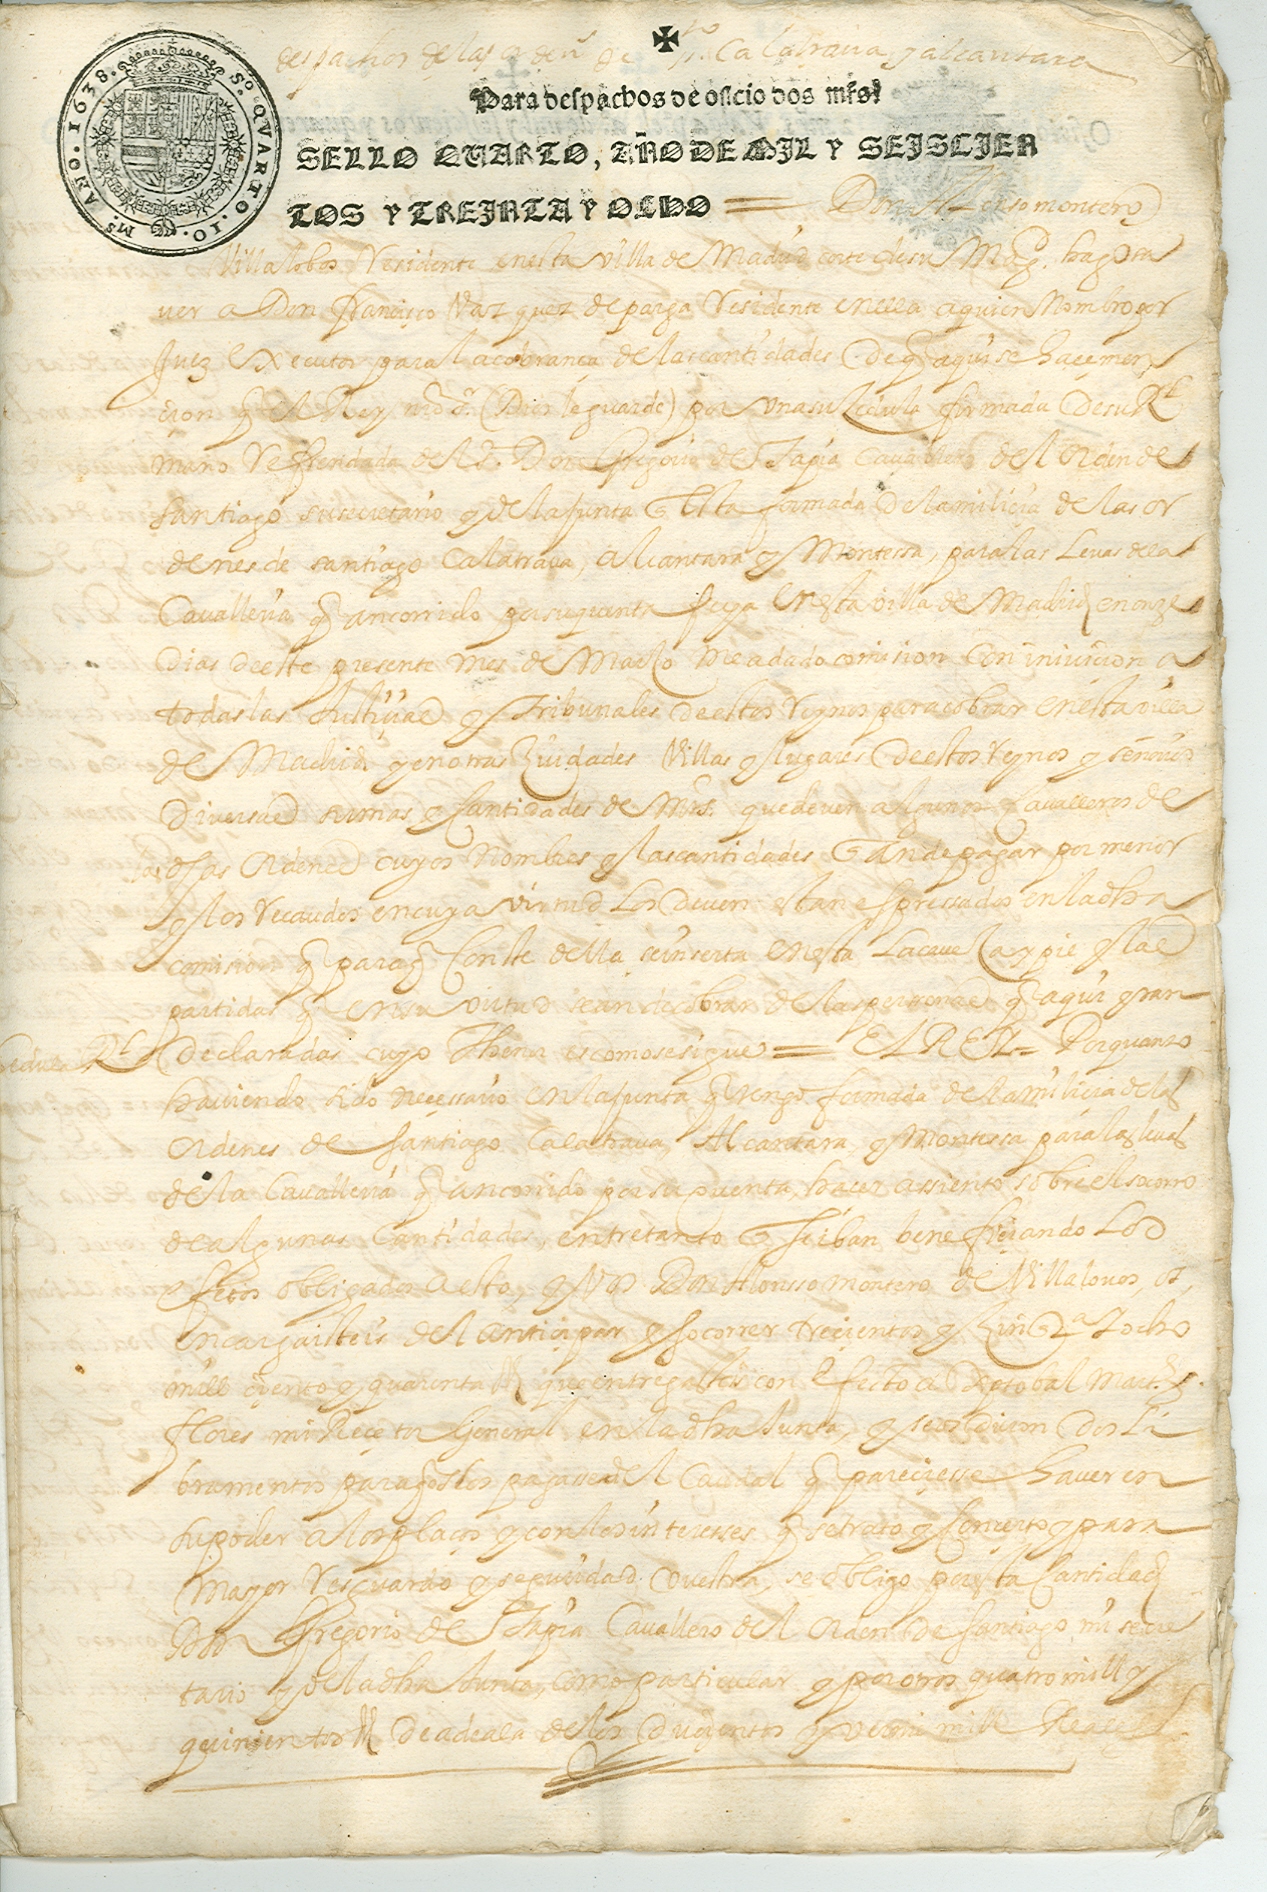 despachos de las Calatraua y alcantara
Para despachos de oficio dos mrs
SELLO QVARTO, AÑO DE MIL Y SEISCIEN
TOS Y TREINTA Y OCHO
SO QVARTO. 10. Ms. AÑO. 1638.
Don Alonso montero
Villalobos Residente en esta villa de Madrid corte de su Magd. hago sa
uer a Don francisco Vazquez de parga Residente en ella a quien Nombro por
Juez Executor para la cobrança de las cantidades de q aqui se haçe men
cion q el Rey nro sr. (Dios le guarde) por vna su Zedula firmada de su Rl
mano Refrendada del Don Gregorio de Tapia Cauallero del Orden de
santiago su secretario y de la Junta q Esta formada de la miliçia de las or
denes de santiago Calatraua, alcantara y Montessa, para las Leuas de la
Cavalleria q an corrido por su quenta fecha En esta villa de Madrid en onze
Dias de este presente mes de Março me a dado comision Con iniuicion a
todas las Justiçias y Tribunales de estos Reynos para cobrar en esta villa
de Madrid y en otras Ziudades Villas y lugares de estos Reynos y señorios
Diversas sumas y Cantidades de Mrs. que deuen algunos Cavalleros de
dhas Ordenes cuyos Nombres y las cantidades q An de pagar por menor
y los Recaudos en cuya virtud Los Deuen estan espressados en la dha
comision q para q Conste della se inserta en esta La caueza y pie y las
partidas q en su virtud se an de cobrar de las personas q aqui yran
Declaradas cuyo Thenor es como se sigue = EL REY = Por quanto
Zedula Rl
hauiendo sido neçessario en la Junta q tengo formada de la miliçia de las
ordenes de Santiago Calatraua, Alcantara y Montessa para las leuas
de la Cavalleria q an corrido por su quenta, hacer assiento sobre el socorro
de algunas Cantidades, entretanto q se iban benefiçiando Los
efetos obligados a esto, y Vos Don Alonsso montero de Villalouos, os,
encargasteis del antiçipar y socorrer treçientos y Zinqta y ocho
mill çiento y quarenta Rs que entregasteis con efecto a Xptobal Mart.z
flores mi Reçetor General en la dha Junta, y se os dieron dos Li
bramentos para q os los pagasse del Caudal q pareciesse hauer en
su poder a los plaços y con los intereses q se trato y Conçerto y para
Mayor Resguardo y seguridad vuestra, se obligo por esta Cantidad
Don Gregorio de Tapia Cauallero del Orden de Santiago mi secre
tario y de la dha Junta, como particular y por otros quatro mill y
quinientos Rs De adeala de los Duçientos y veinte mill Reales